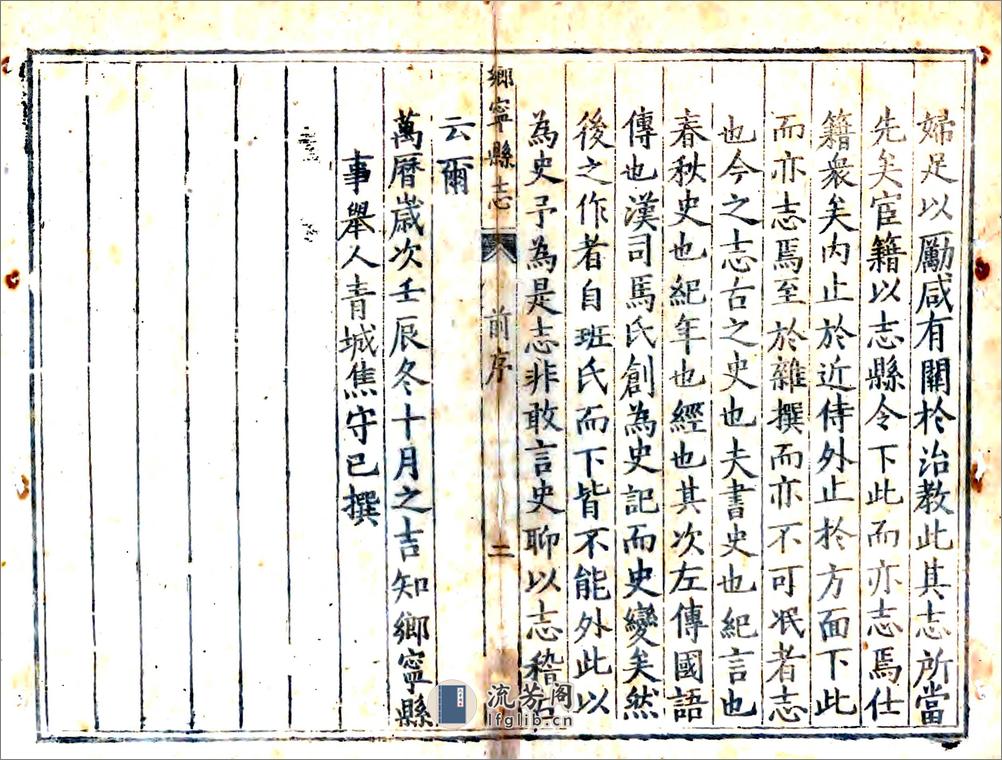 婦足以勵咸有關於治教此其志所當
先矣宦籍以志縣令下此而亦志焉仕
籍衆矣內止於近侍外止於方面下此
而亦志焉至於雜撰而亦不可泯者志
也今之志古之史也夫書史也紀言也
春秋史也紀年也經也其次左傳國語
傳也漢司馬氏創為史記而史變矣然
後之作者自班氏而下皆不能外此以
為史予為是志非敢言史聊以志稽
鄉寧縣志 前序 二
云爾
萬曆歲次壬辰冬十月之吉知鄉寧縣
事舉人青城焦守己撰
流芳閣
lfglib.cn